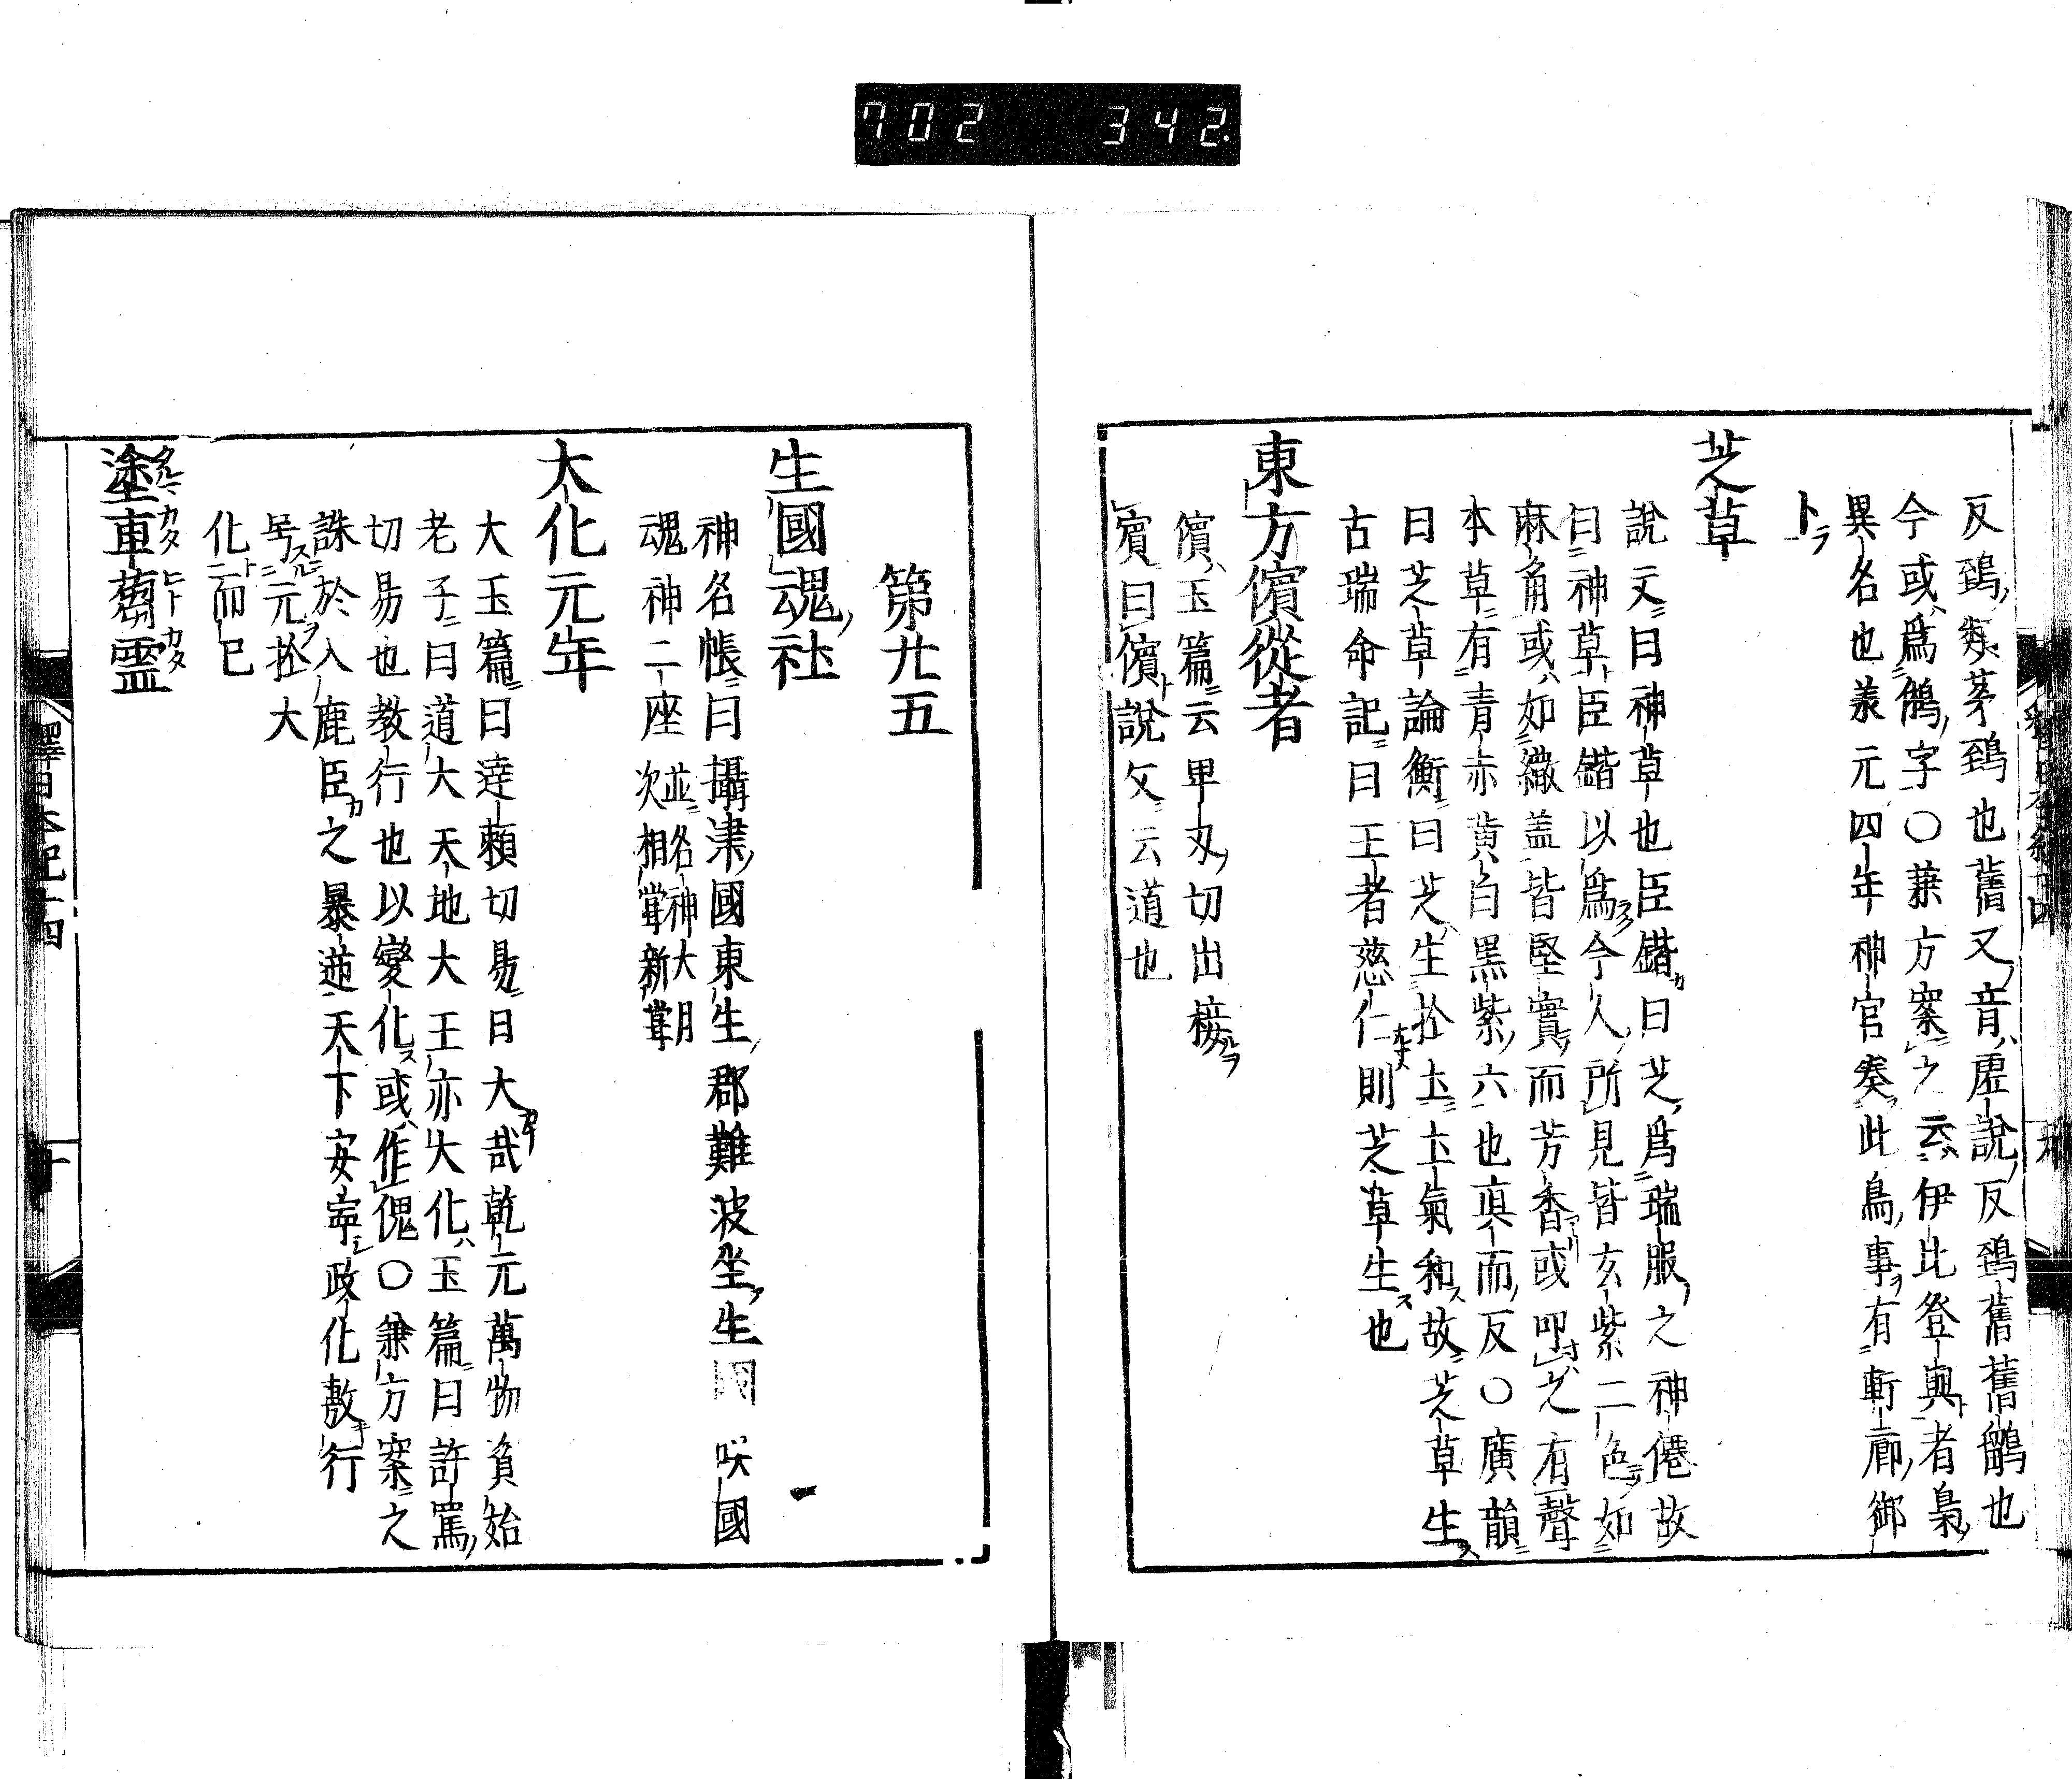 702 342.
反鵄類茅鵄也舊又音虛說反鵄舊舊鶹也
今或爲鵂字〇兼方案之云伊比登與者梟
異名也養元四年神官奏此鳥事有軒廊御
卜
芝草
說文曰神草也臣鍇曰芝爲瑞服之神僊故
曰神草臣鍇以爲今人所見皆玄紫二色如
麻角或如繖盖皆堅實而芳香或叩之有聲
本草有青赤黄白黑紫六也眞而反〇廣韻
曰芝草論衡曰芝生於土土氣和故芝草生
古瑞命記曰王者慈仁則芝草生也
東方儐從者
儐玉篇云卑刃切出接
賓曰儐說文云道也
第廿五
生國魂社
神名帳曰攝津國東生郡難波坐生國咲國
魂神二座 並名神大月次相甞新甞
大化元年
大玉篇曰達賴切易曰大哉乾元萬物資始
老子曰道大天地大王亦大化玉篇曰許罵
切易也教行也以變化或作傀〇兼方案之
誅於入鹿臣之暴逆天下安寧政化敷行
号元於大
化而已
塗車蒭靈
釋日本紀十四
十